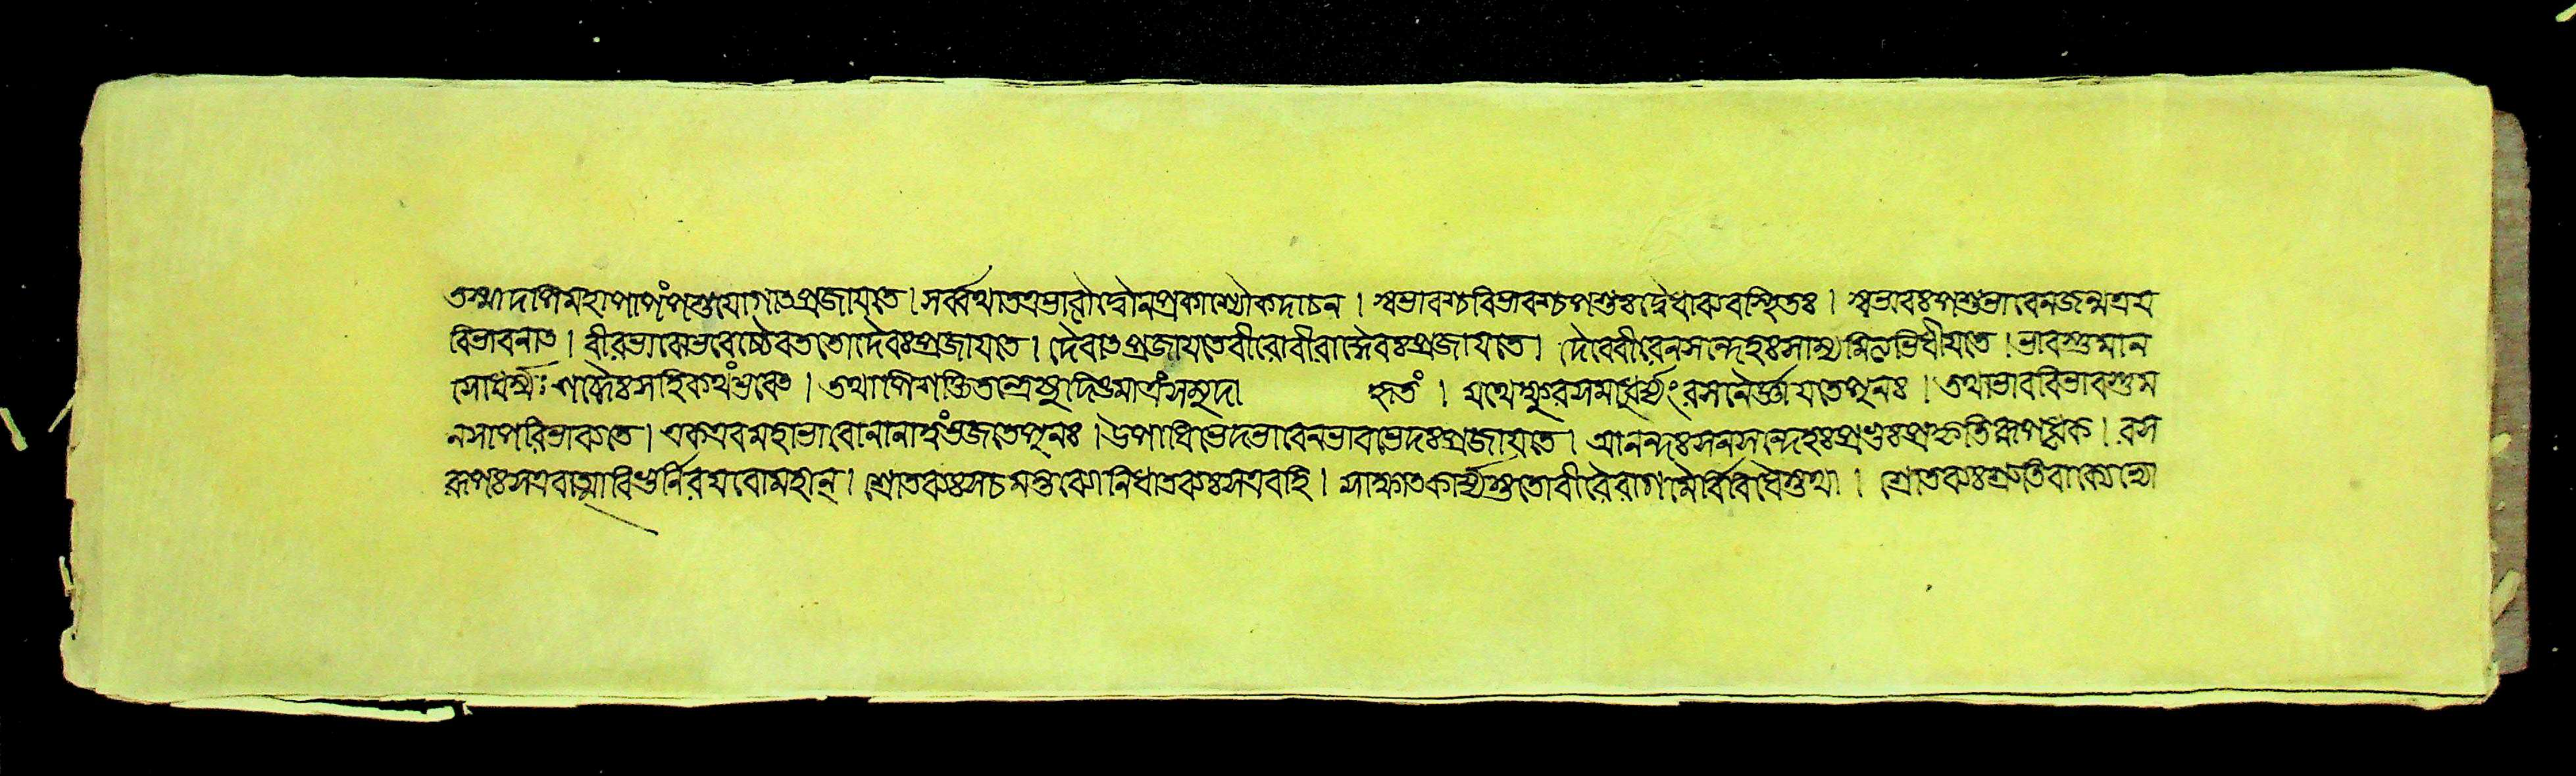 তস্মাদপিমহাপাপং পশুযাগাৎপ্রজায়তে । সর্ব্বথাতএভাবোদ্বৌনপ্রকাশ্যৌকদাচন । স্বভাবশ্চবিভাবশ্চপশুঃদ্বেধাব্যবস্থিতঃ । স্বভাবঃপশুভাবেনজন্ম
বিভাবনাৎ । বীরভাবো ততোদেবঃপ্রজায়তে । দেবাৎপ্রজায়তেবীরোবীরাদ্দেবঃপ্রজায়তে । দেবেবীরেনসন্দেহঃসাম্যমিত্যভিধীয়তে । ভাবস্তুমান
সোধর্ম্মঃ শাব্দঃসহিকথংভবেৎ । তথাপিশক্তিতন্ত্রেষু সমুদা হৃতং । যথেক্ষুরসমাধুর্য্যংরসনৈর্জ্ঞায়তেপুনঃ । তথাভাববিভাবস্তুম
নসাপরিভাব্যতে । একএবমহাভাবোনানাত্বংভজতেপুনঃ । উপাধিভেদভাবেনভাবভেদঃপ্রজায়তে । আনন্দঃসনসন্দেহঃপ্রভুঃপ্রকৃতিরূপধৃক । রস
রূপঃসএবাত্মাবিভুর্নিরয়বোমহান্ । শ্রোতব্যঃসচমন্তব্যোনিধাতব্যঃসএবহি । সাক্ষাৎকার্য্যস্ততোবীরৈরাগমৈর্বিবিধৈস্তথা । শ্রোতব্যঃশ্রুতিবাক্যেভ্যো